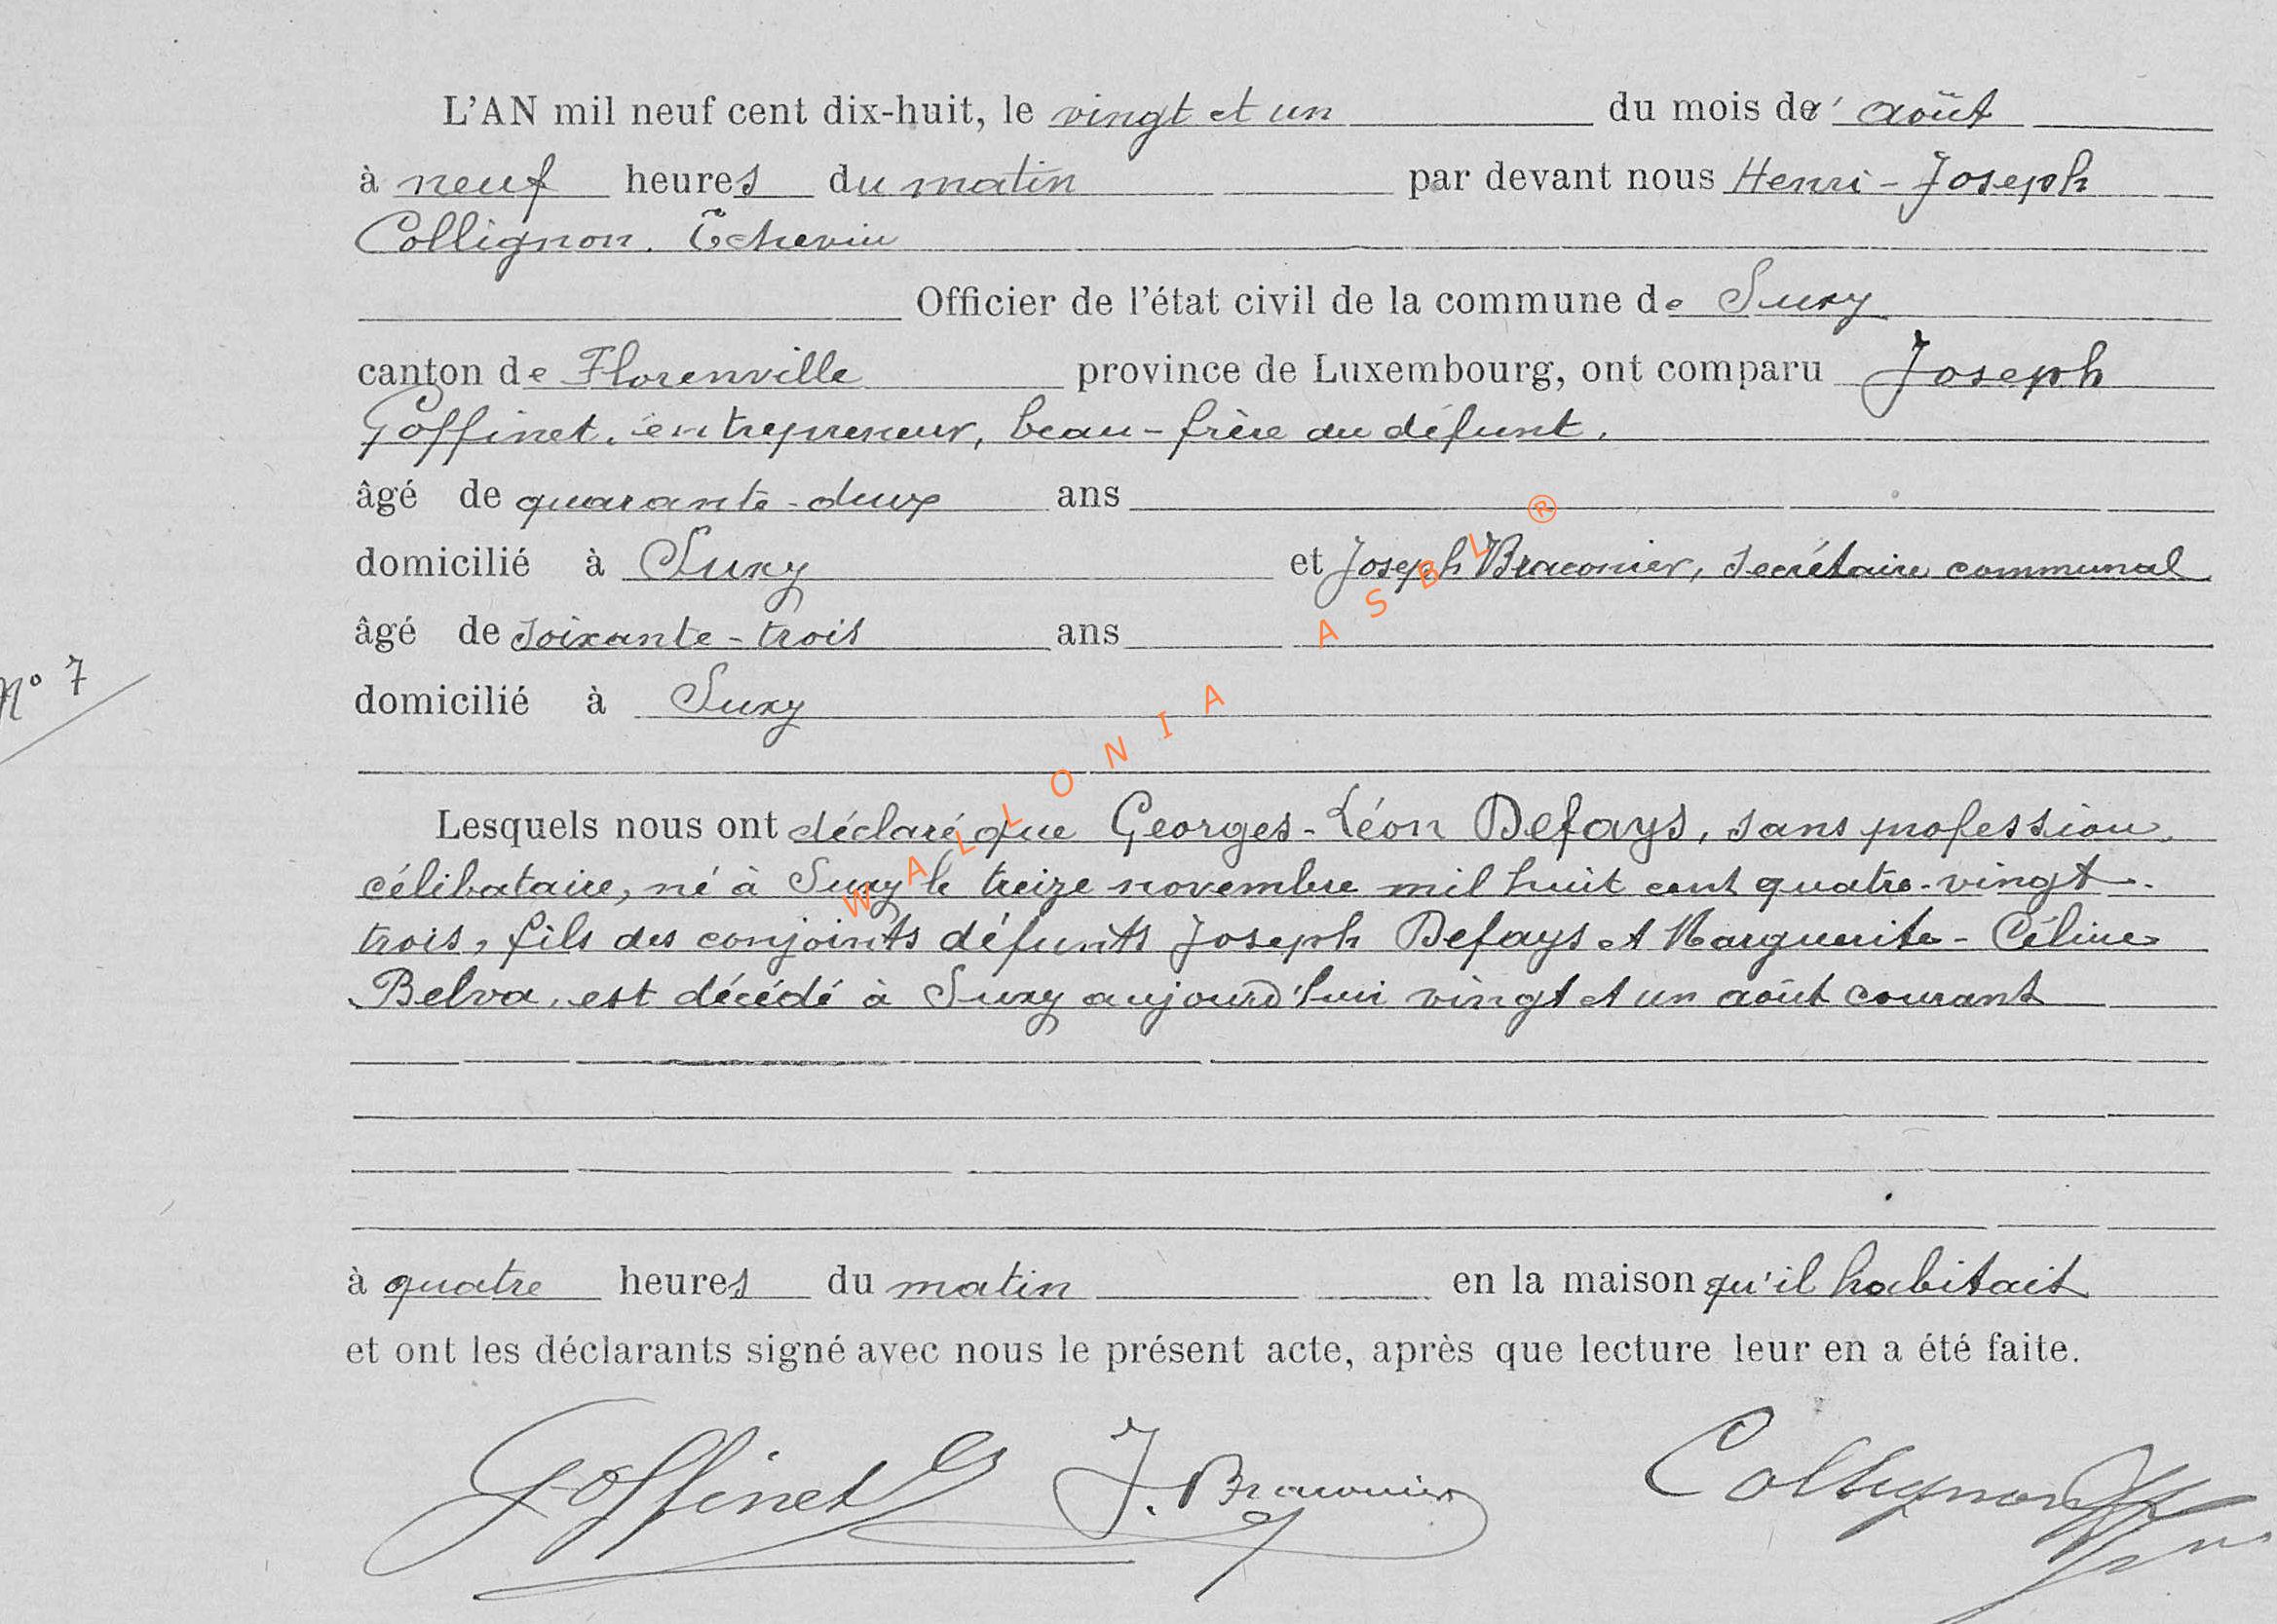 L'AN mil neuf cent dix-huit, le vingt et un du mois d' août
à neuf heures du matin par devant nous Henri-Joseph
Collignon. Echevin
Officier de l'état civil de la commune de Suxy
canton de Florenville province de Luxembourg, ont comparu Joseph
Goffinet, entrepreneur, beau-frère du défunt,
âgé de quarante-deux ans
domicilié à Suxy et Joseph Braconier, secrétaire communal
âgé de soixante-trois ans
N° 7
domicilié à Suxy
Lesquels nous ont déclaré que Georges-Léon Defays, sans profession,
célibataire, né à Suxy le treize novembre mil huit cent quatre-vingt-
trois, fils des conjoints défunts Joseph Defays et Marguerite-Céline
Belva, est décédé à Suxy aujourd'hui vingt et un août courant
à quatre heures du matin en la maison qu'il habitait
et ont les déclarants signé avec nous le présent acte, après que lecture leur en a été faite.
Goffinet J. Braconier Collignon
WALLONIA ASBL ®